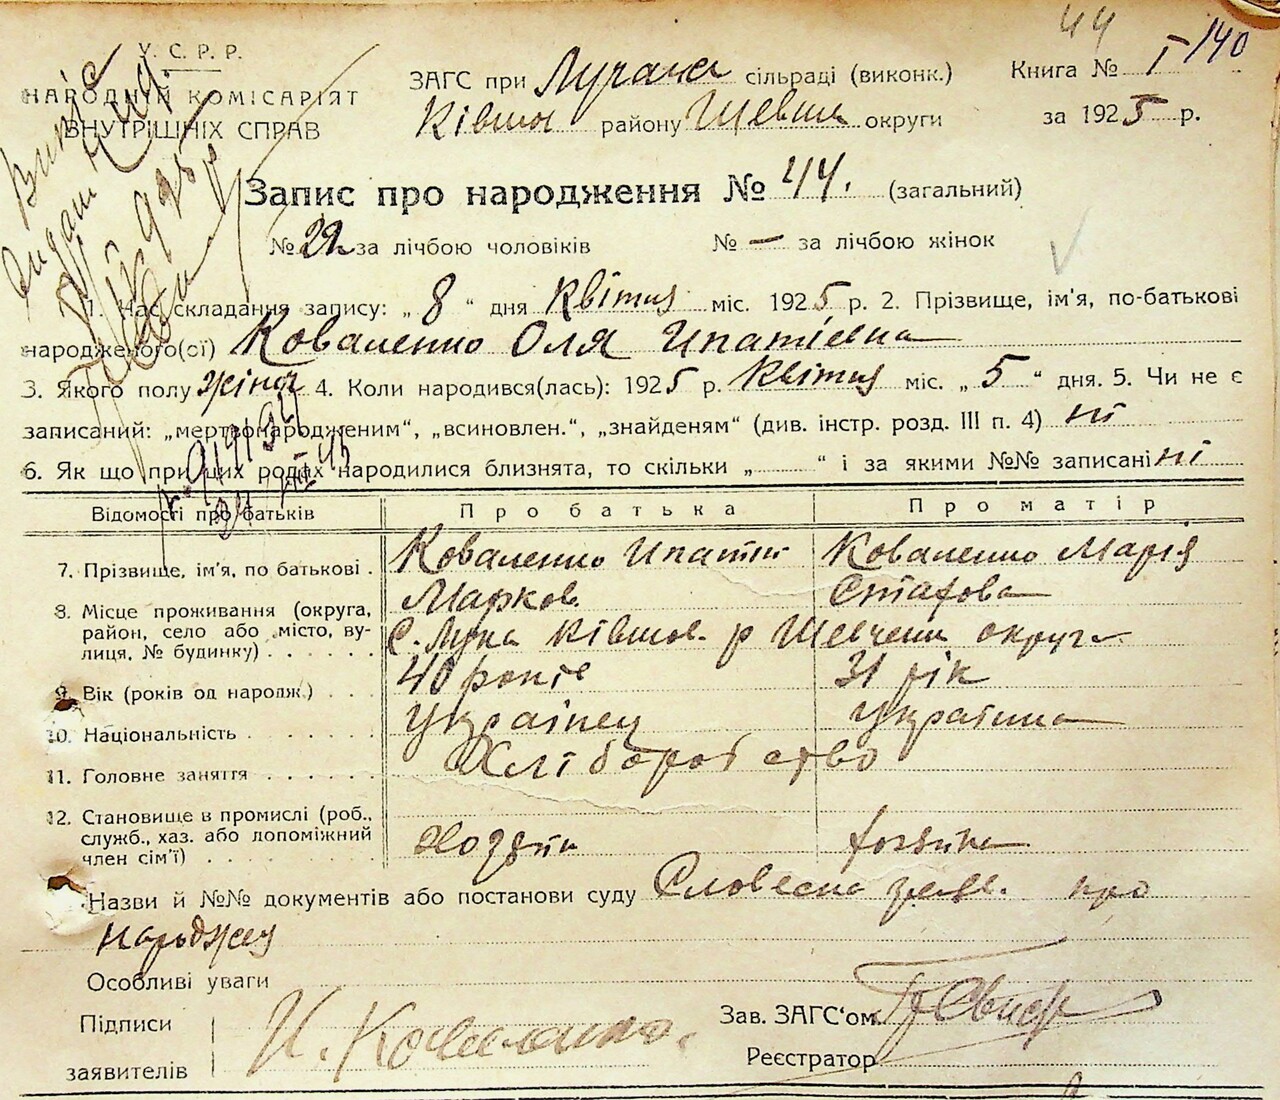 44
I 140
У. С. Р. Р.
НАРОДНІЙ КОМІСАРІЯТ
ВНУТРІШНІХ СПРАВ
ЗАГС при сільраді (виконк.)
району Шевчен округи
Книга №
за 1925 р.
Запис про народження № 44. (загальний)
№ 22 за лічбою чоловіків № — за лічбою жінок
1. Час складання запису: „ 8 “ дня Квітня міс. 1925 р. 2. Прізвище, ім'я, по-батькові
народженого(ої) Коваленко Оля Ипатіевна
3. Якого полу жіноч 4. Коли народився(лась): 1925 р. Квітня міс. „ 5 “ дня. 5. Чи не є
записаний: „мертвонародженим“, „всиновлен.“, „знайденям“ (див. інстр. розд. III п. 4) ні
6. Як що при цих родах народилися близнята, то скільки „ “ і за якими №№ записані ні
Відомості про батьків Про батька Про матір
7. Прізвище, ім'я, по батькові . Коваленко Ипатій Коваленко Марія
Марков. Єтафова
8. Місце проживання (округа,
район, село або місто, ву-
лиця, № будинку) . . . . . С. Лука Ківшов. р Шевченк округа
9. Вік (років од народж.) . . . 40 років 31 рік
10. Національність . . . . . . Українец Украинка
11. Головне заняття . . . . . . Хліборобство
12. Становище в промислі (роб.,
служб., хаз. або допоміжний
член сім'ї) . . . . . . . . Хозяїн
Назви й №№ документів або постанови суду Словесна заяв. про
Особливі уваги
Підписи
заявителів
И. Коваленко.
Зав. ЗАГС'ом
Реєстратор